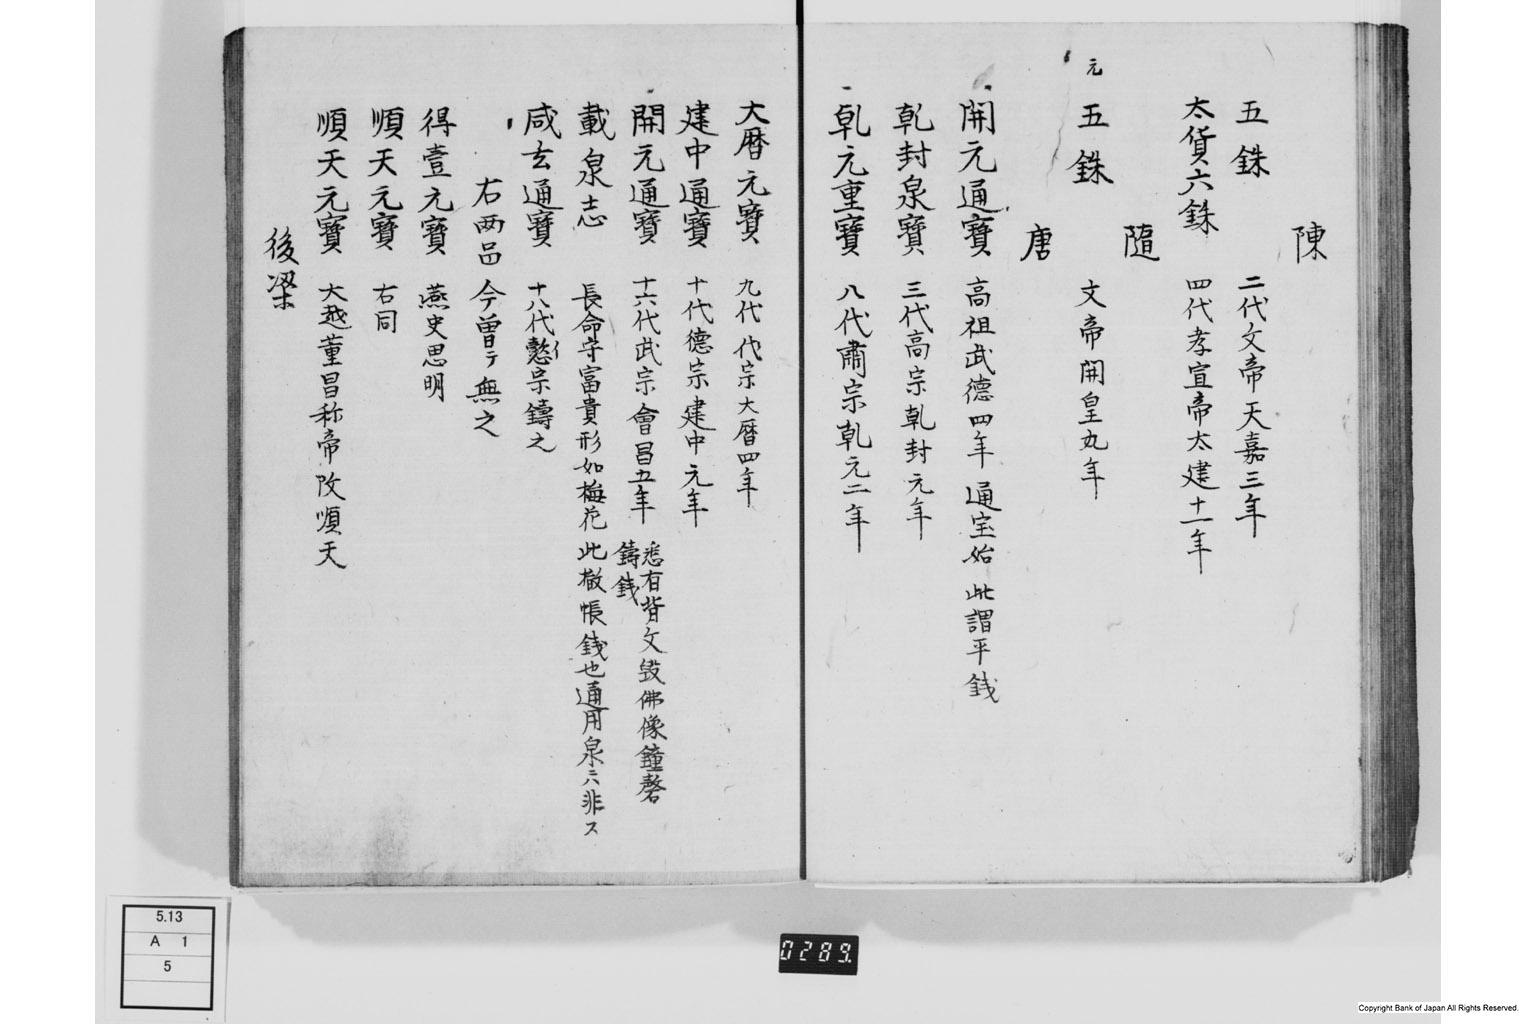 陳
五銖 二代文帝天嘉三年
太貨六銖 四代孝宣帝太建十一年
隨
元
五銖 文帝開皇九年
唐
開元通寶 高祖武德四年 通宝始 此謂平銭
乹封泉寶 三代高宗乹封元年
乹元重寶 八代肅宗乹元二年
大暦元寶 九代代宗大暦四年
建中通寶 十代德宗建中元年
開元通寶 十六代武宗會昌五年 悉有背文毀佛像鐘磬
鑄銭
載泉志 長命守富貴形如梅花此撒帳銭也通用泉ニハ非ス
咸玄通寶 十八代懿イ宗鑄之
右两品今曽テ無之
得壹元寶 燕史思明
順天元寶 右同
順天元寶 大越董昌称帝改順天
後梁
5.13
A 1
5
0289.
Copyright Bank of Japan All Rights Reserved.